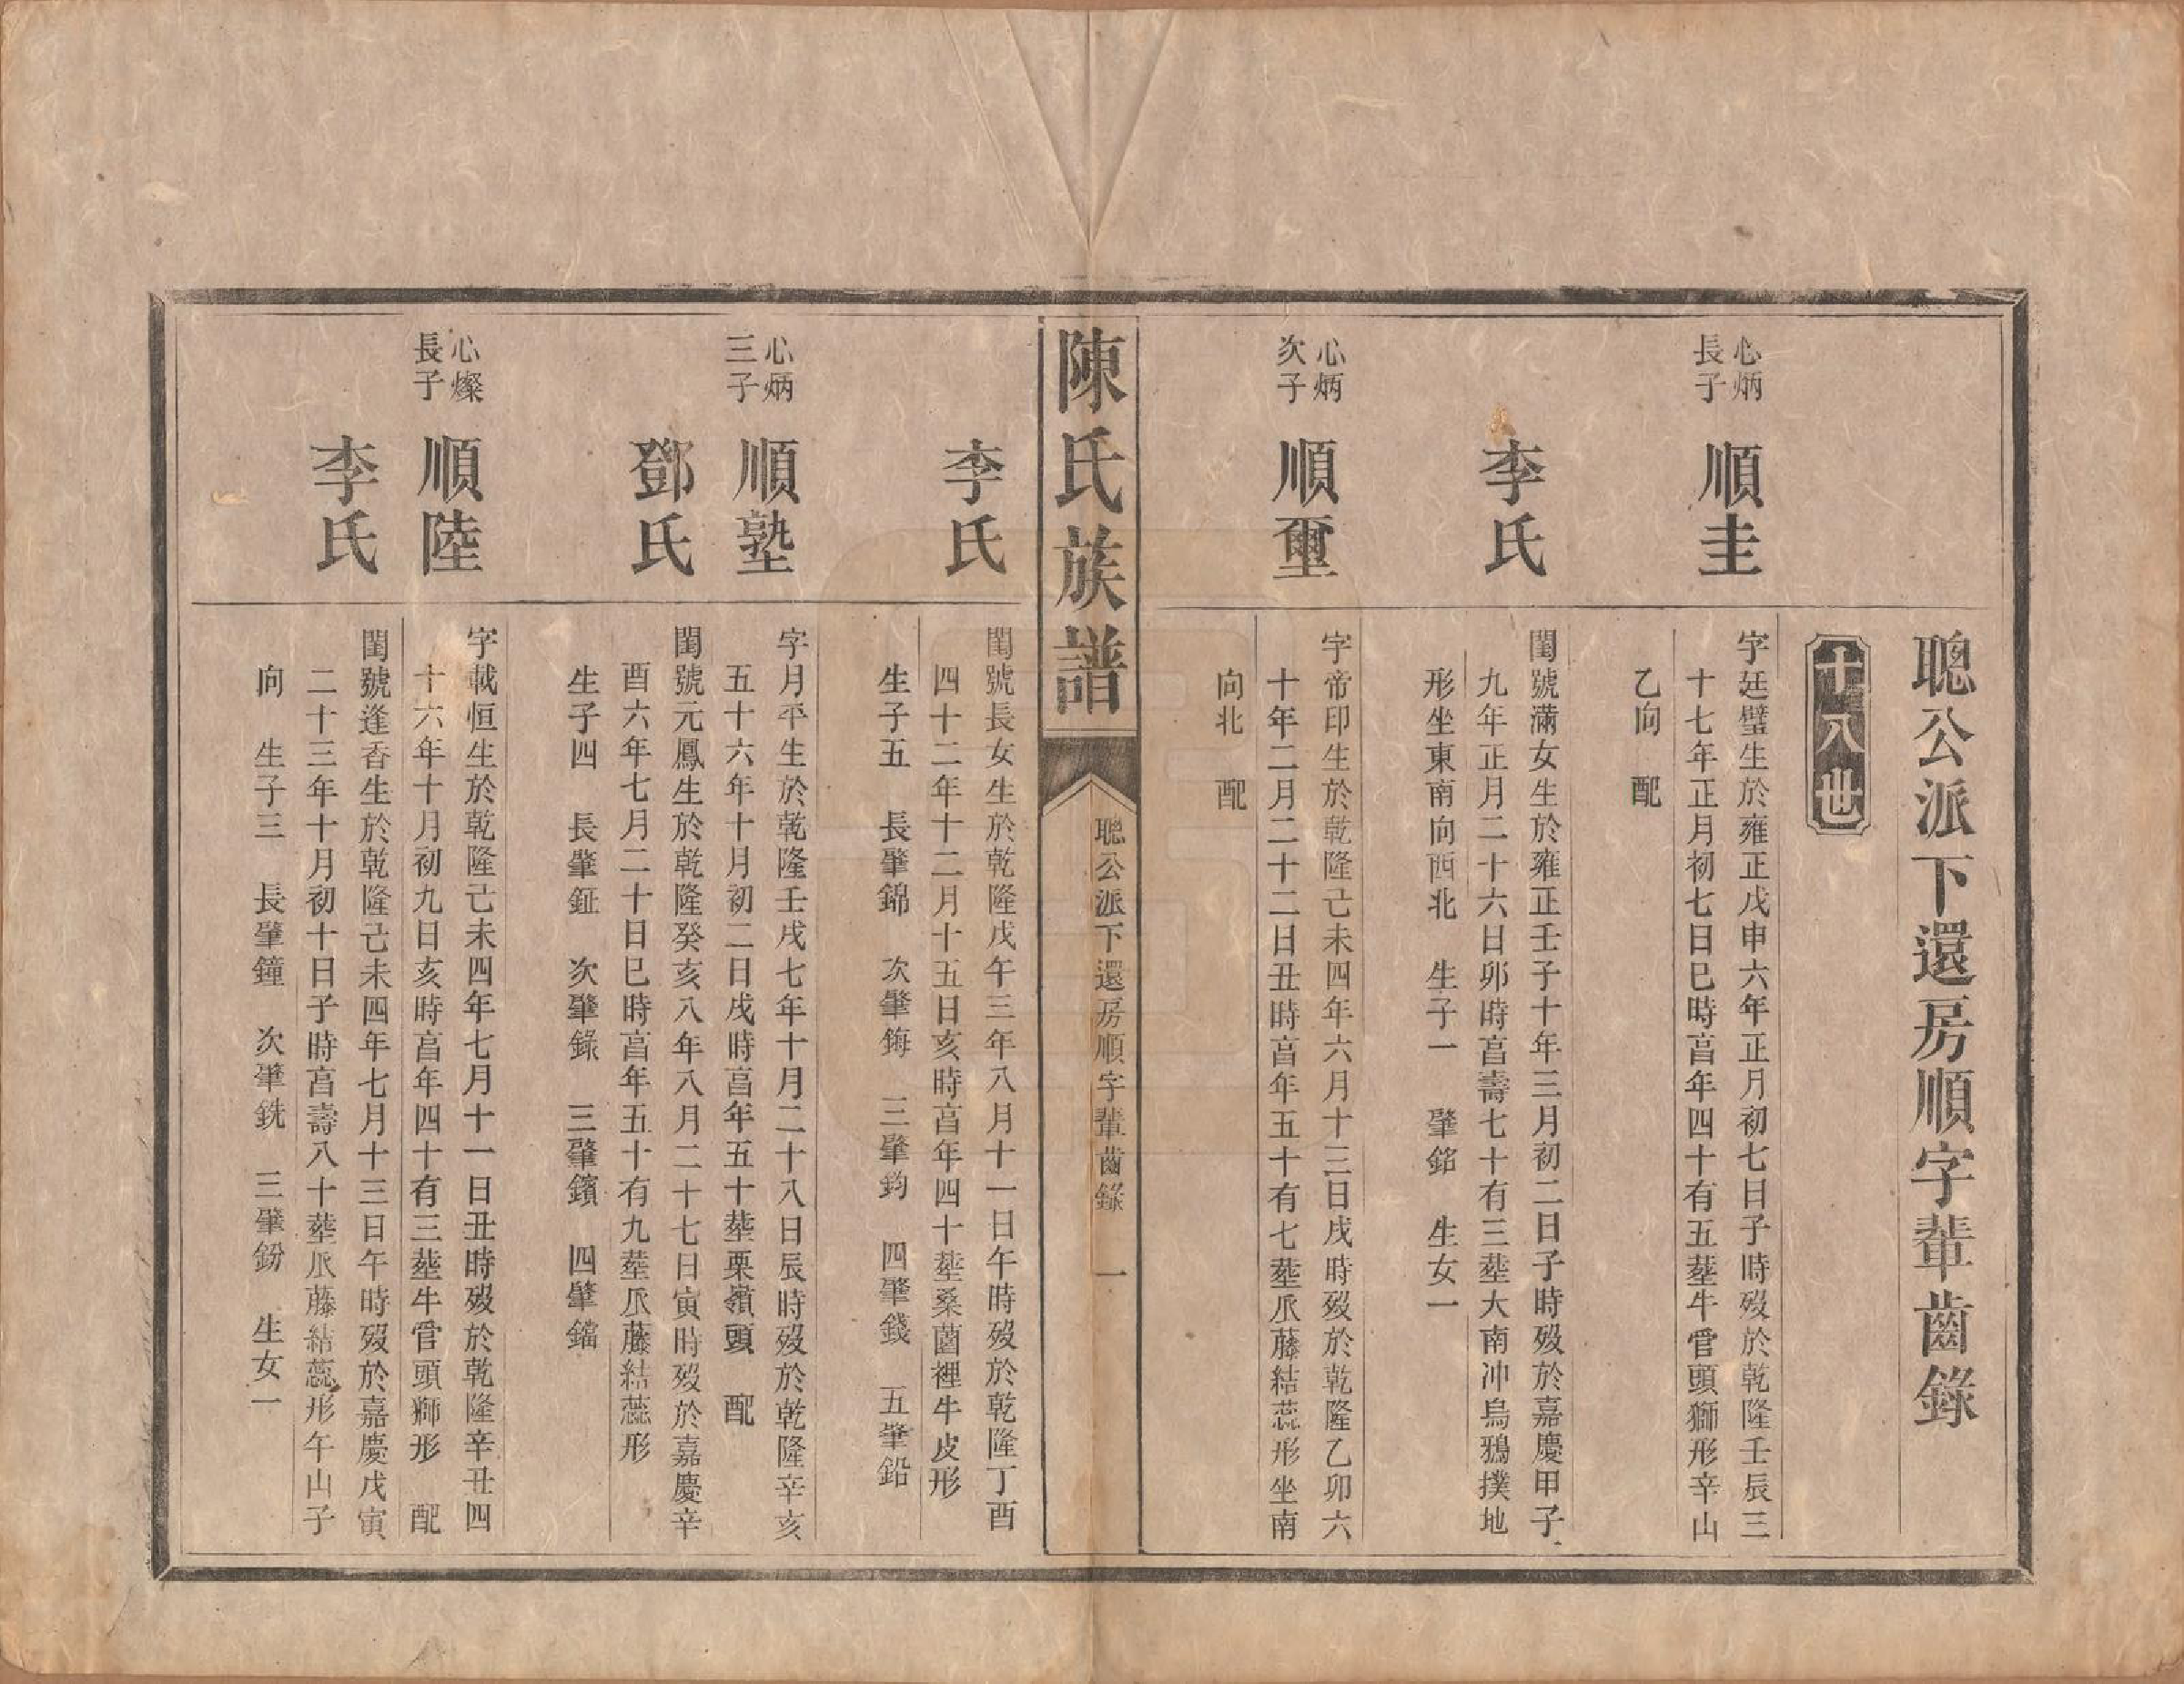 聰公派下還房順字輩齒錄
十八世
心炳
長子
順圭
字廷璧生於雍正戊申六年正月初七日子時歿於乾隆壬辰三
十七年正月初七日巳時亯年四十有五塟牛管頭獅形辛山
乙向　配
李氏
閨號滿女生於雍正壬子十年三月初二日子時歿於嘉慶甲子
九年正月二十六日卯時亯壽七十有三塟大南冲烏鴉撲地
形坐東南向西北　生子一　肇銘　生女一
心炳
次子
順壐
字帝印生於乾隆己未四年六月十三日戌時歿於乾隆乙卯六
十年二月二十二日丑時亯年五十有七塟𤓰藤結蕊形坐南
向北　配
陳氏族譜
聰公派下還房順字輩齒錄　一
李氏
閨號長女生於乾隆戊午三年八月十一日午時歿於乾隆丁酉
四十二年十二月十五日亥時亯年四十塟桑園裡牛皮形
生子五　長肇錦　次肇鋂　三肇鈞　四肇錢　五肇鉛
心炳
三子
順塾
字月平生於乾隆壬戌七年十月二十八日辰時歿於乾隆辛亥
五十六年十月初二日戌時亯年五十塟栗嶺頭　配
鄧氏
閨號元鳳生於乾隆癸亥八年八月二十七日寅時歿於嘉慶辛
酉六年七月二十日巳時亯年五十有九塟𤓰藤結蕊形
生子四　長肇鉦　次肇錄　三肇鑌　四肇鐺
心燦
長子
順陸
字載恒生於乾隆己未四年七月十一日丑時歿於乾隆辛丑四
十六年十月初九日亥時亯年四十有三塟牛管頭獅形　配
李氏
閨號逢香生於乾隆己未四年七月十三日午時歿於嘉慶戊寅
二十三年十月初十日子時亯壽八十塟𤓰藤結蕊形午山子
向　生子三　長肇鐘　次肇銑　三肇鈖　生女一